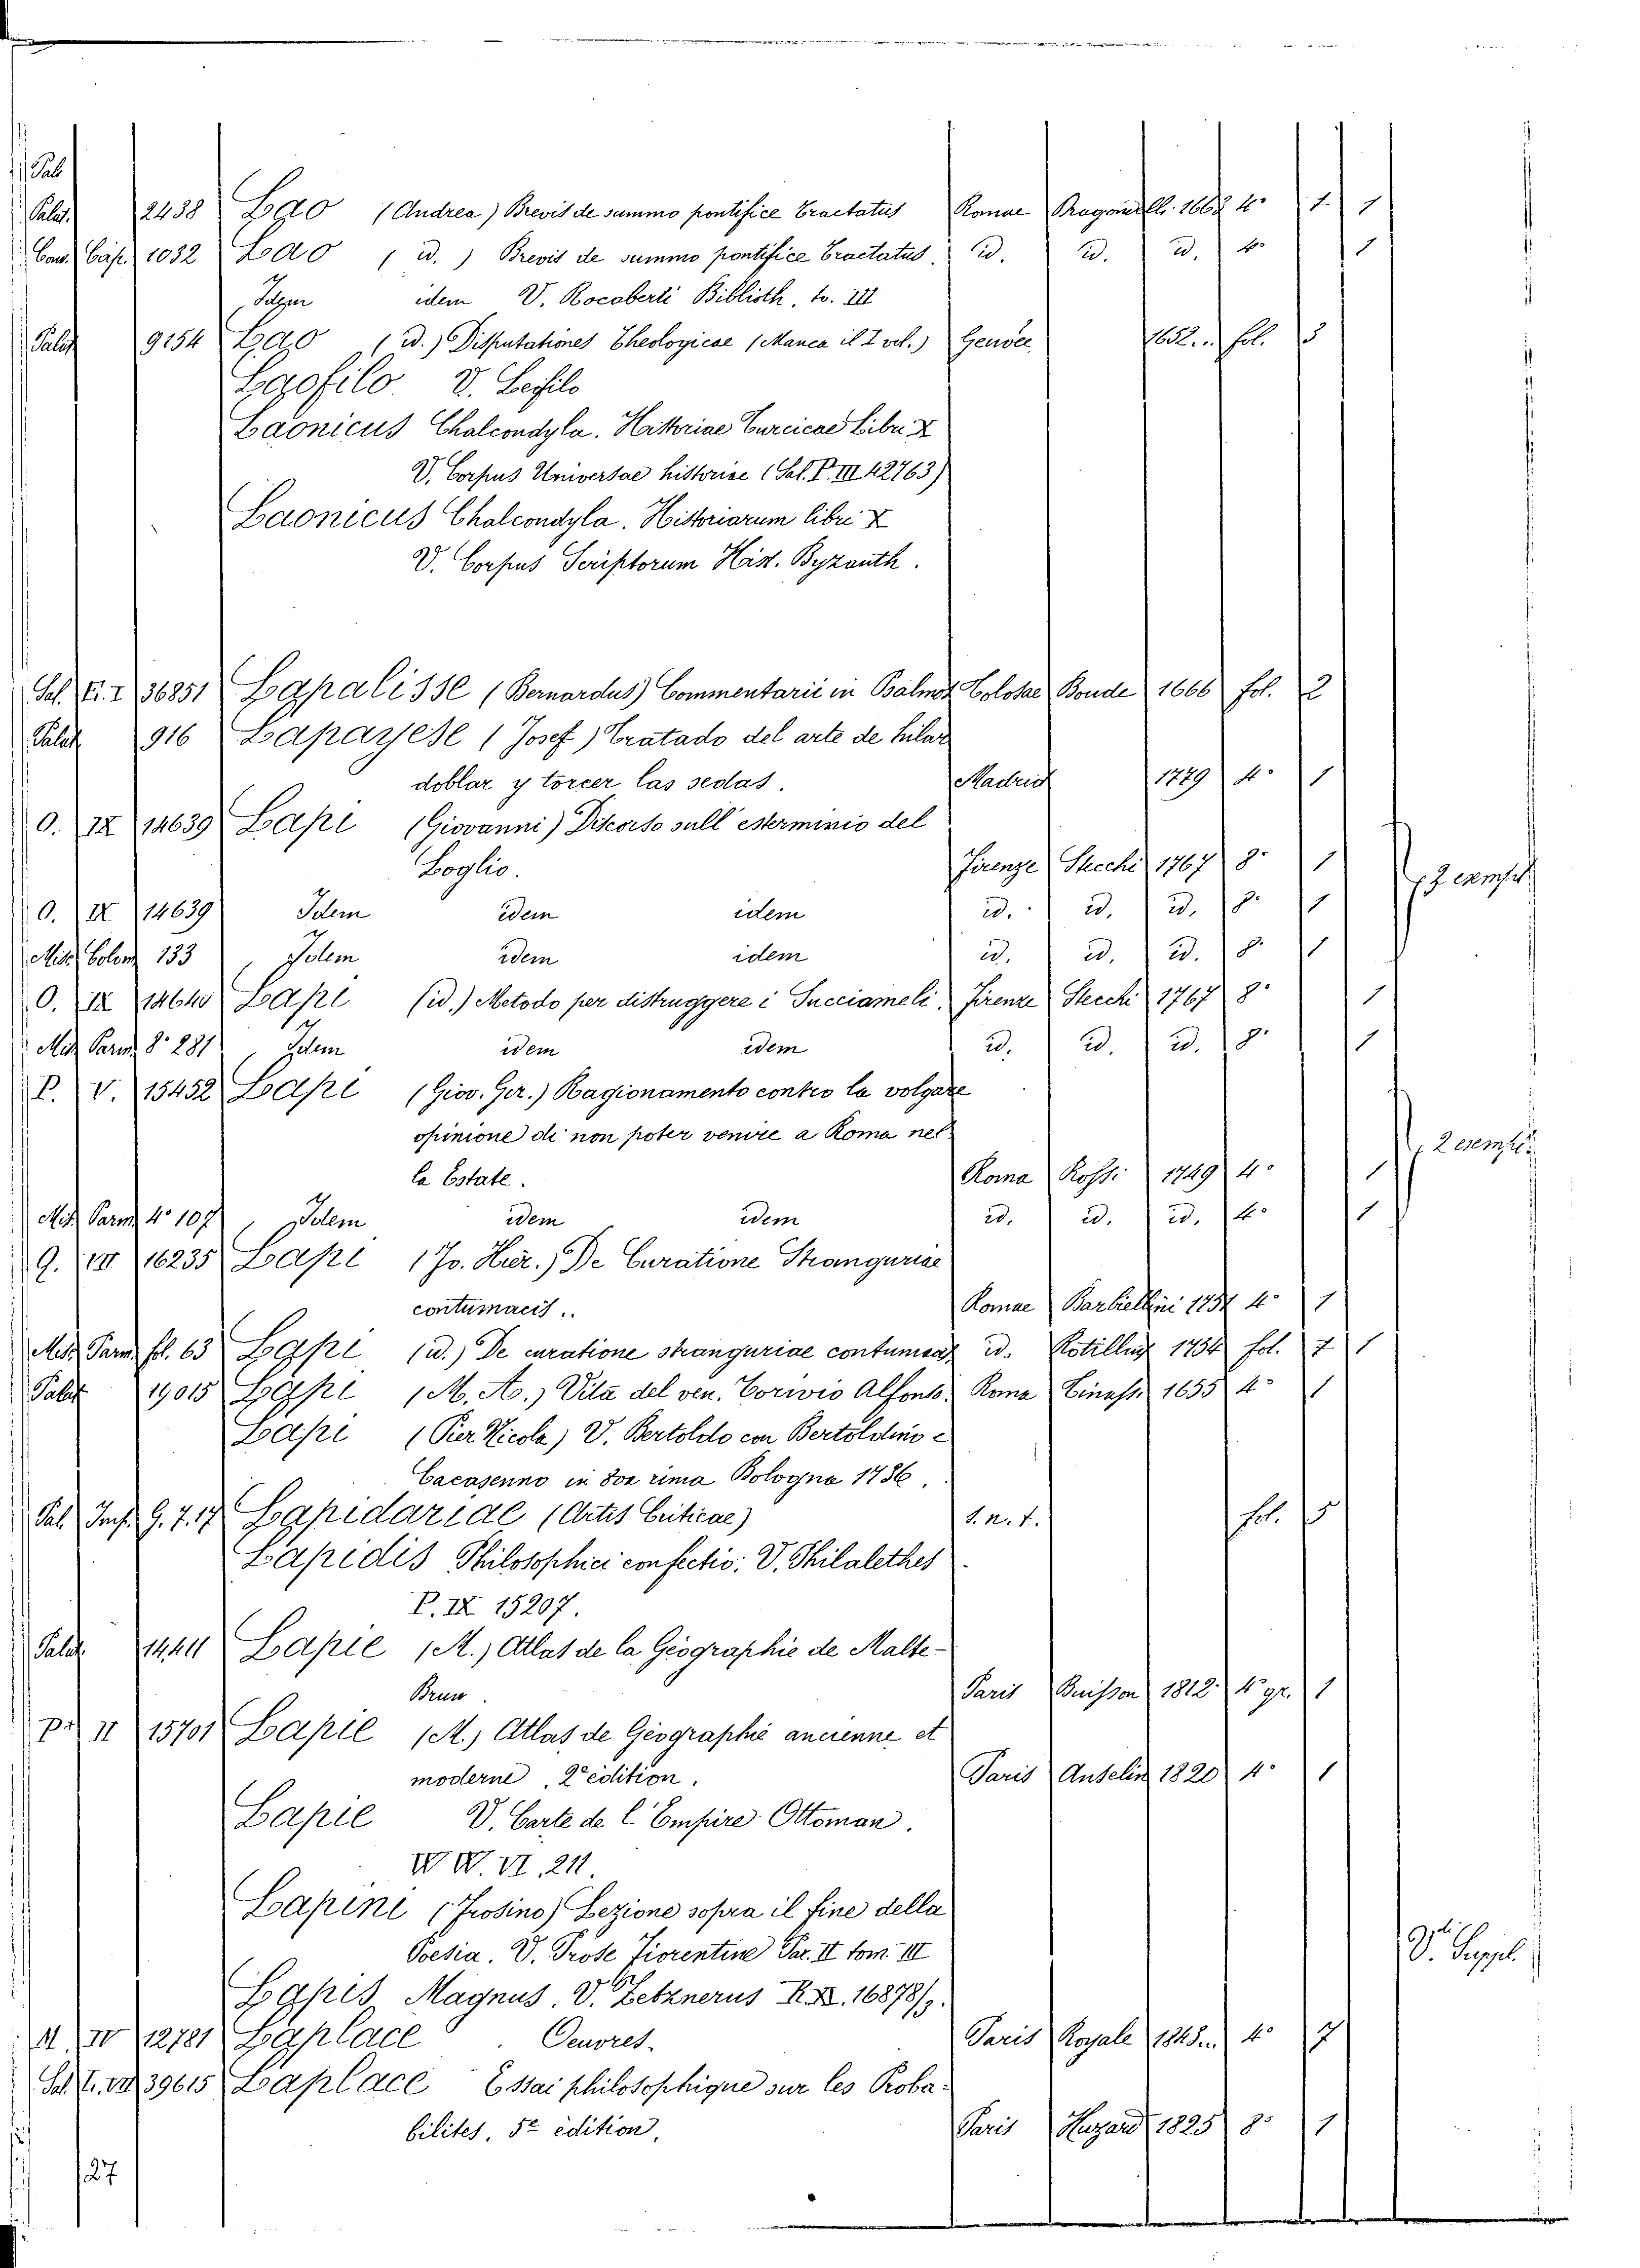 Pal
Palat. 2438 Lao (Andrea) Brevis de summo pontifice Tractatus Romae Dragondelli 1668 4º 1 1
Com. Casp. 1032 Lao (id.) Brevis de summo pontifice Tractatus. id. id. id. 4º 1
idem V. Rocaberti Biblioth. to. III
Palat 9154 Lao (id.) Disputationes Theologicae (Manca il I vol.) Genvae 1652... fol. 3
Laofilo V. Leofilo
Laonicus Chalcondyla. Historiae Turcicae Libri X
V. Corpus Universae historiae (Sal. P. III 42763)
Laonicus Chalcondyla. Historiarum libri X
V. Corpus Scriptorum Hist. Byzanth.
Sal. E. I 36851 Lapalisse (Bernardus) Commentarii in Psalmos Tolosae Boude 1666 fol. 2
Palat 916 Lapayese (Josef) Tratado del arte de hilar
doblar y torcer las sedas. Madrid 1779 4º 1
O. IX 14639 Lapi (Giovanni) Discorso sull'esterminio del
Loglio. Firenze Stecchi 1767 8º 1
2 esempl.
O. IX 14639 Idem idem idem id. id. id. 8º 1
Misc. Colom. 133 Idem idem idem id. id. id. 8º 1
O. IX 14640 Lapi (id.) Metodo per distruggere i Succiameli. Firenze Stecchi 1767 8º 1
Mis. Parm. 8º 281 Idem idem idem id. id. id. 8º 1
P. V. 15452 Lapi (Giov. Gir.) Ragionamento contro la volgare
opinione di non poter venire a Roma nel
la Estate. Roma Rossi 1749 4º 1
2 esempl.
Mis. Parm. 4º 107 Idem idem idem id. id. id. 4º 1
Q. VII 16235 Lapi (Jo. Hier.) De Curatione Stranguriae
contumacis.. Romae Barbiellini 1751 4º 1
Mis. Parm. fol. 63 Lapi (id.) De curatione stranguriae contumac. id. Rotilling 1751 fol. 7 1
Palat 19015 Lapi (M. A.) Vita del ven. Torivio Alfonso. Roma Tinassi 1655 4º 1
Lapi (Pier Nicola) V. Bertoldo con Bertoldino e
Cacasenno in 8va rima Bologna 1736.
Pal. Imp. G. 7. 17 Lapidariae (Artis Criticae) s. n. t. fol. 5
Lapidis Philosophici confectio: V. Philalethes
P. IX 15207.
Palat. 14411 Lapie (M.) Atlas de la Géographie de Malte-
Brun. Paris Buisson 1812 4º gr. 1
P. II 15701 Lapie (M.) Atlas de Géographie ancienne et
moderne, 2e édition. Paris Anselin 1820 4º 1
Lapie V. Carte de l'Empire Ottoman.
W W. VI. 211.
Lapini (Frosino) Lezione sopra il fine della
Poesia. V. Prose Fiorentine Par. II tom. III
V. Suppl.
Lapis Magnus. V. Zetznerus R. X. 16878/3.
M. IV 12781 Laplace Oeuvres. Paris Royale 1845... 4º 7
Sal. E. VII 39615 Laplace Essai philosophique sur les Proba-
bilités, 5e édition. Paris Huzard 1825 8º 1
127